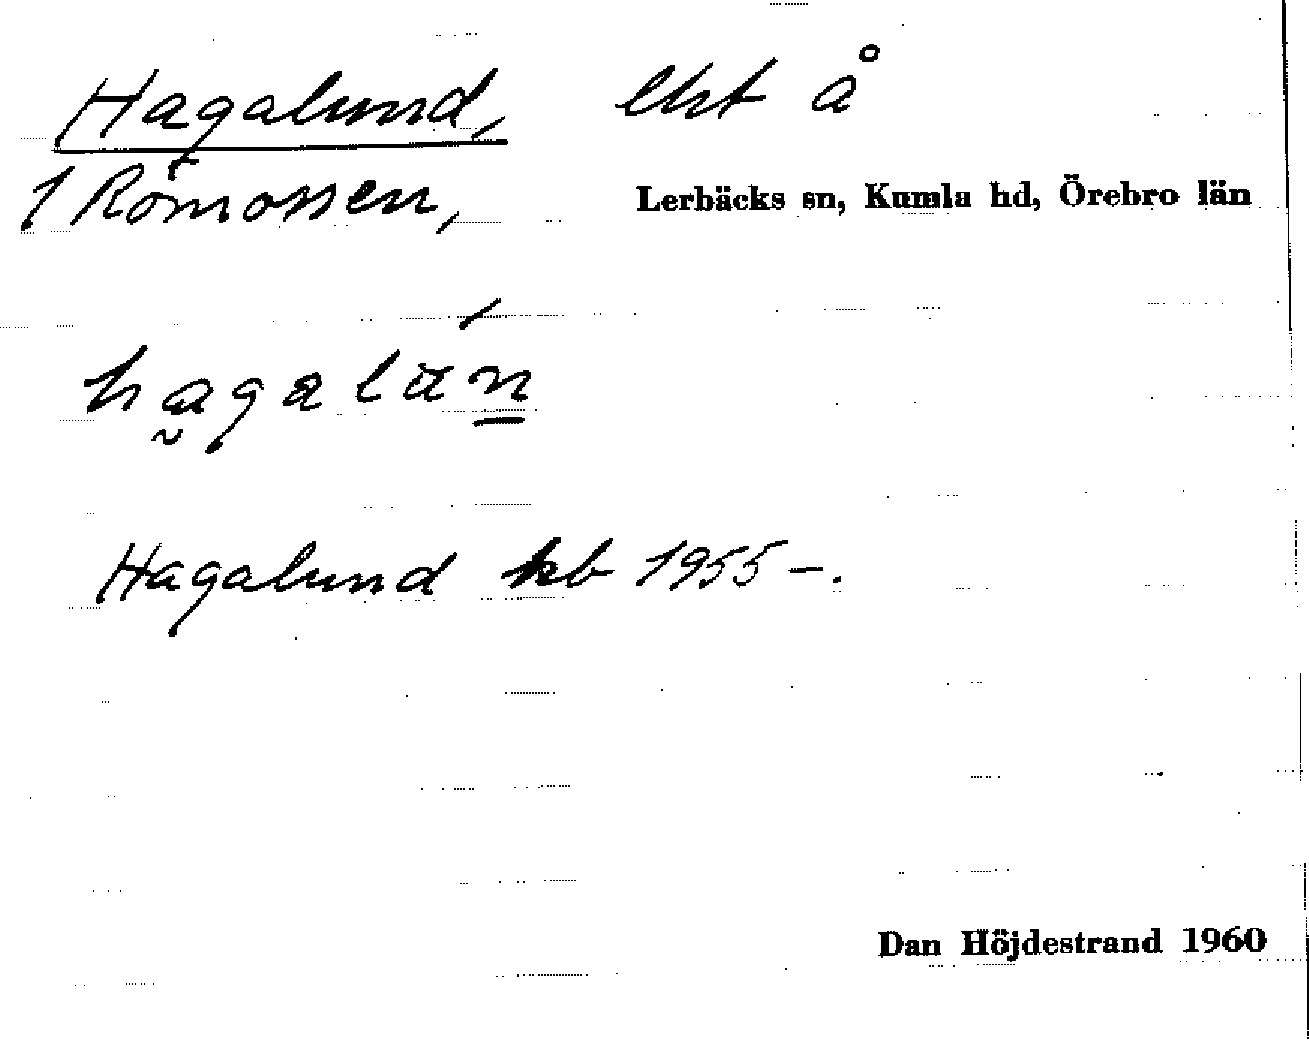 Hagalund, lht å
1 Römossen,
Lerbäcks sn, Kumla hd, Örebro län
hagalun
Hagalund kb 1955 –.
Dan Höjdestrand 1960